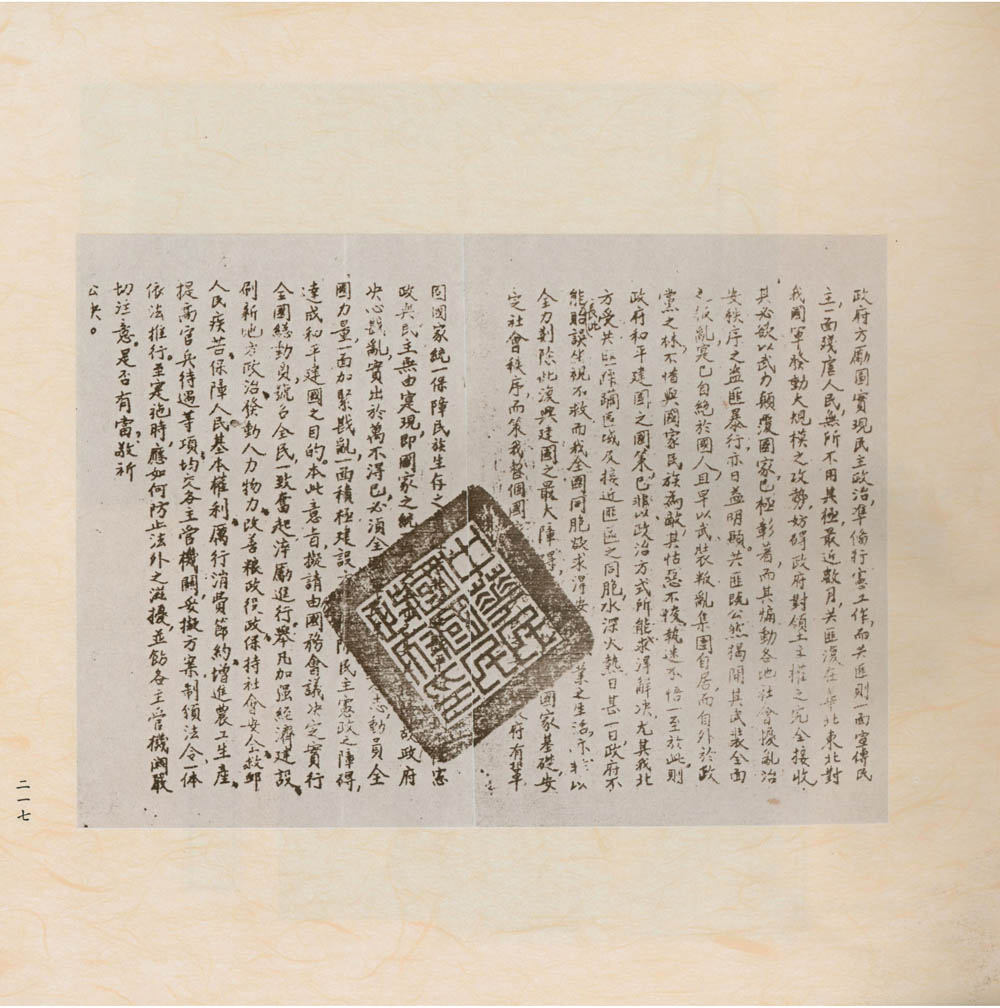 政府方勵圖實現民主政治,準備行憲工作,而共匪則一面宣傳民
主,一面殘虐人民,無所不用其極,最近數月,共匪復在華北東北對
我國軍發動大規模之攻勢,妨碍政府對領土主權之完全接收
其必欲以武力顛覆國家,已極彰著,而其煽動各地社會擾亂治
安秩序之盜匪暴行,亦日益明顯。共匪旣公然揭開其武裝全面
叛亂,寔已自絕於國人,且早以武裝叛亂集團自居,而自外於政
黨之林,不惜與國家民族為敵,其怙惡不悛,執迷不悟,一至於此,則
政府和平建國之國策,已非以政治方式所能求得解決,尤其我北
方受共匪蹂躪區域及接近匪區之同胞,水深火熱,日甚一日,政府不
能貽誤坐視不救,而我全國同胞欲求得安 業之生活,亦 以
長此
全力剷除此復興建國之最大障碍, 國家基礎,安
定社會秩序,而策我整個國 府有鞏
固國家統一保障民族生存之 憲
政與民主無由寔現,即國家之統 故政府
決心戡亂,實出於萬不得已,必須全 志,動員全
國力量,一面加緊戡亂,一面積極建設, 民主憲政之障碍,
達成和平建國之目的。本此意旨,擬請由國務會議決定實行
全國總動員,號召全民,一致奮起,淬勵進行。舉凡加强經濟建設,
刷新地方政治,發動人力物力,改善粮政役政,保持社會安全,救卹
人民疾苦,保障人民基本權利,厲行消費節約,增進農工生產,
提高官兵待遇等項,均交各主管機關,妥擬方案,制頒法令,一体
依法推行。並寔施時,應如何防止法外之滋擾,並飭各主管機關嚴
切注意。是否有當,敬祈
公決。
二一七